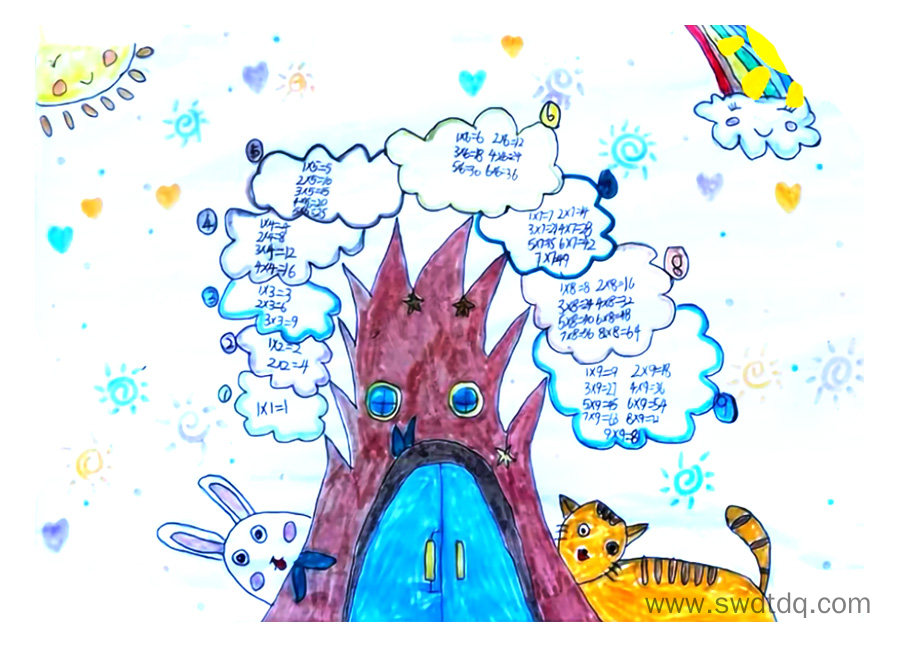 1
1×1=1
2
1×2=2
2×2=4
3
1×3=3
2×3=6
3×3=9
4
1×4=4
2×4=8
3×4=12
4×4=16
5
1×5=5
2×5=10
3×5=15
4×5=20
5×5=25
6
1×6=6 2×6=12
3×6=18 4×6=24
5×6=30 6×6=36
1×7=7 2×7=14
3×7=21 4×7=28
5×7=35 6×7=42
7×7=49
8
1×8=8 2×8=16
3×8=24 4×8=32
5×8=40 6×8=48
7×8=56 8×8=64
9
1×9=9 2×9=18
3×9=27 4×9=36
5×9=45 6×9=54
7×9=63 8×9=72
9×9=81
www.swdtdq.com